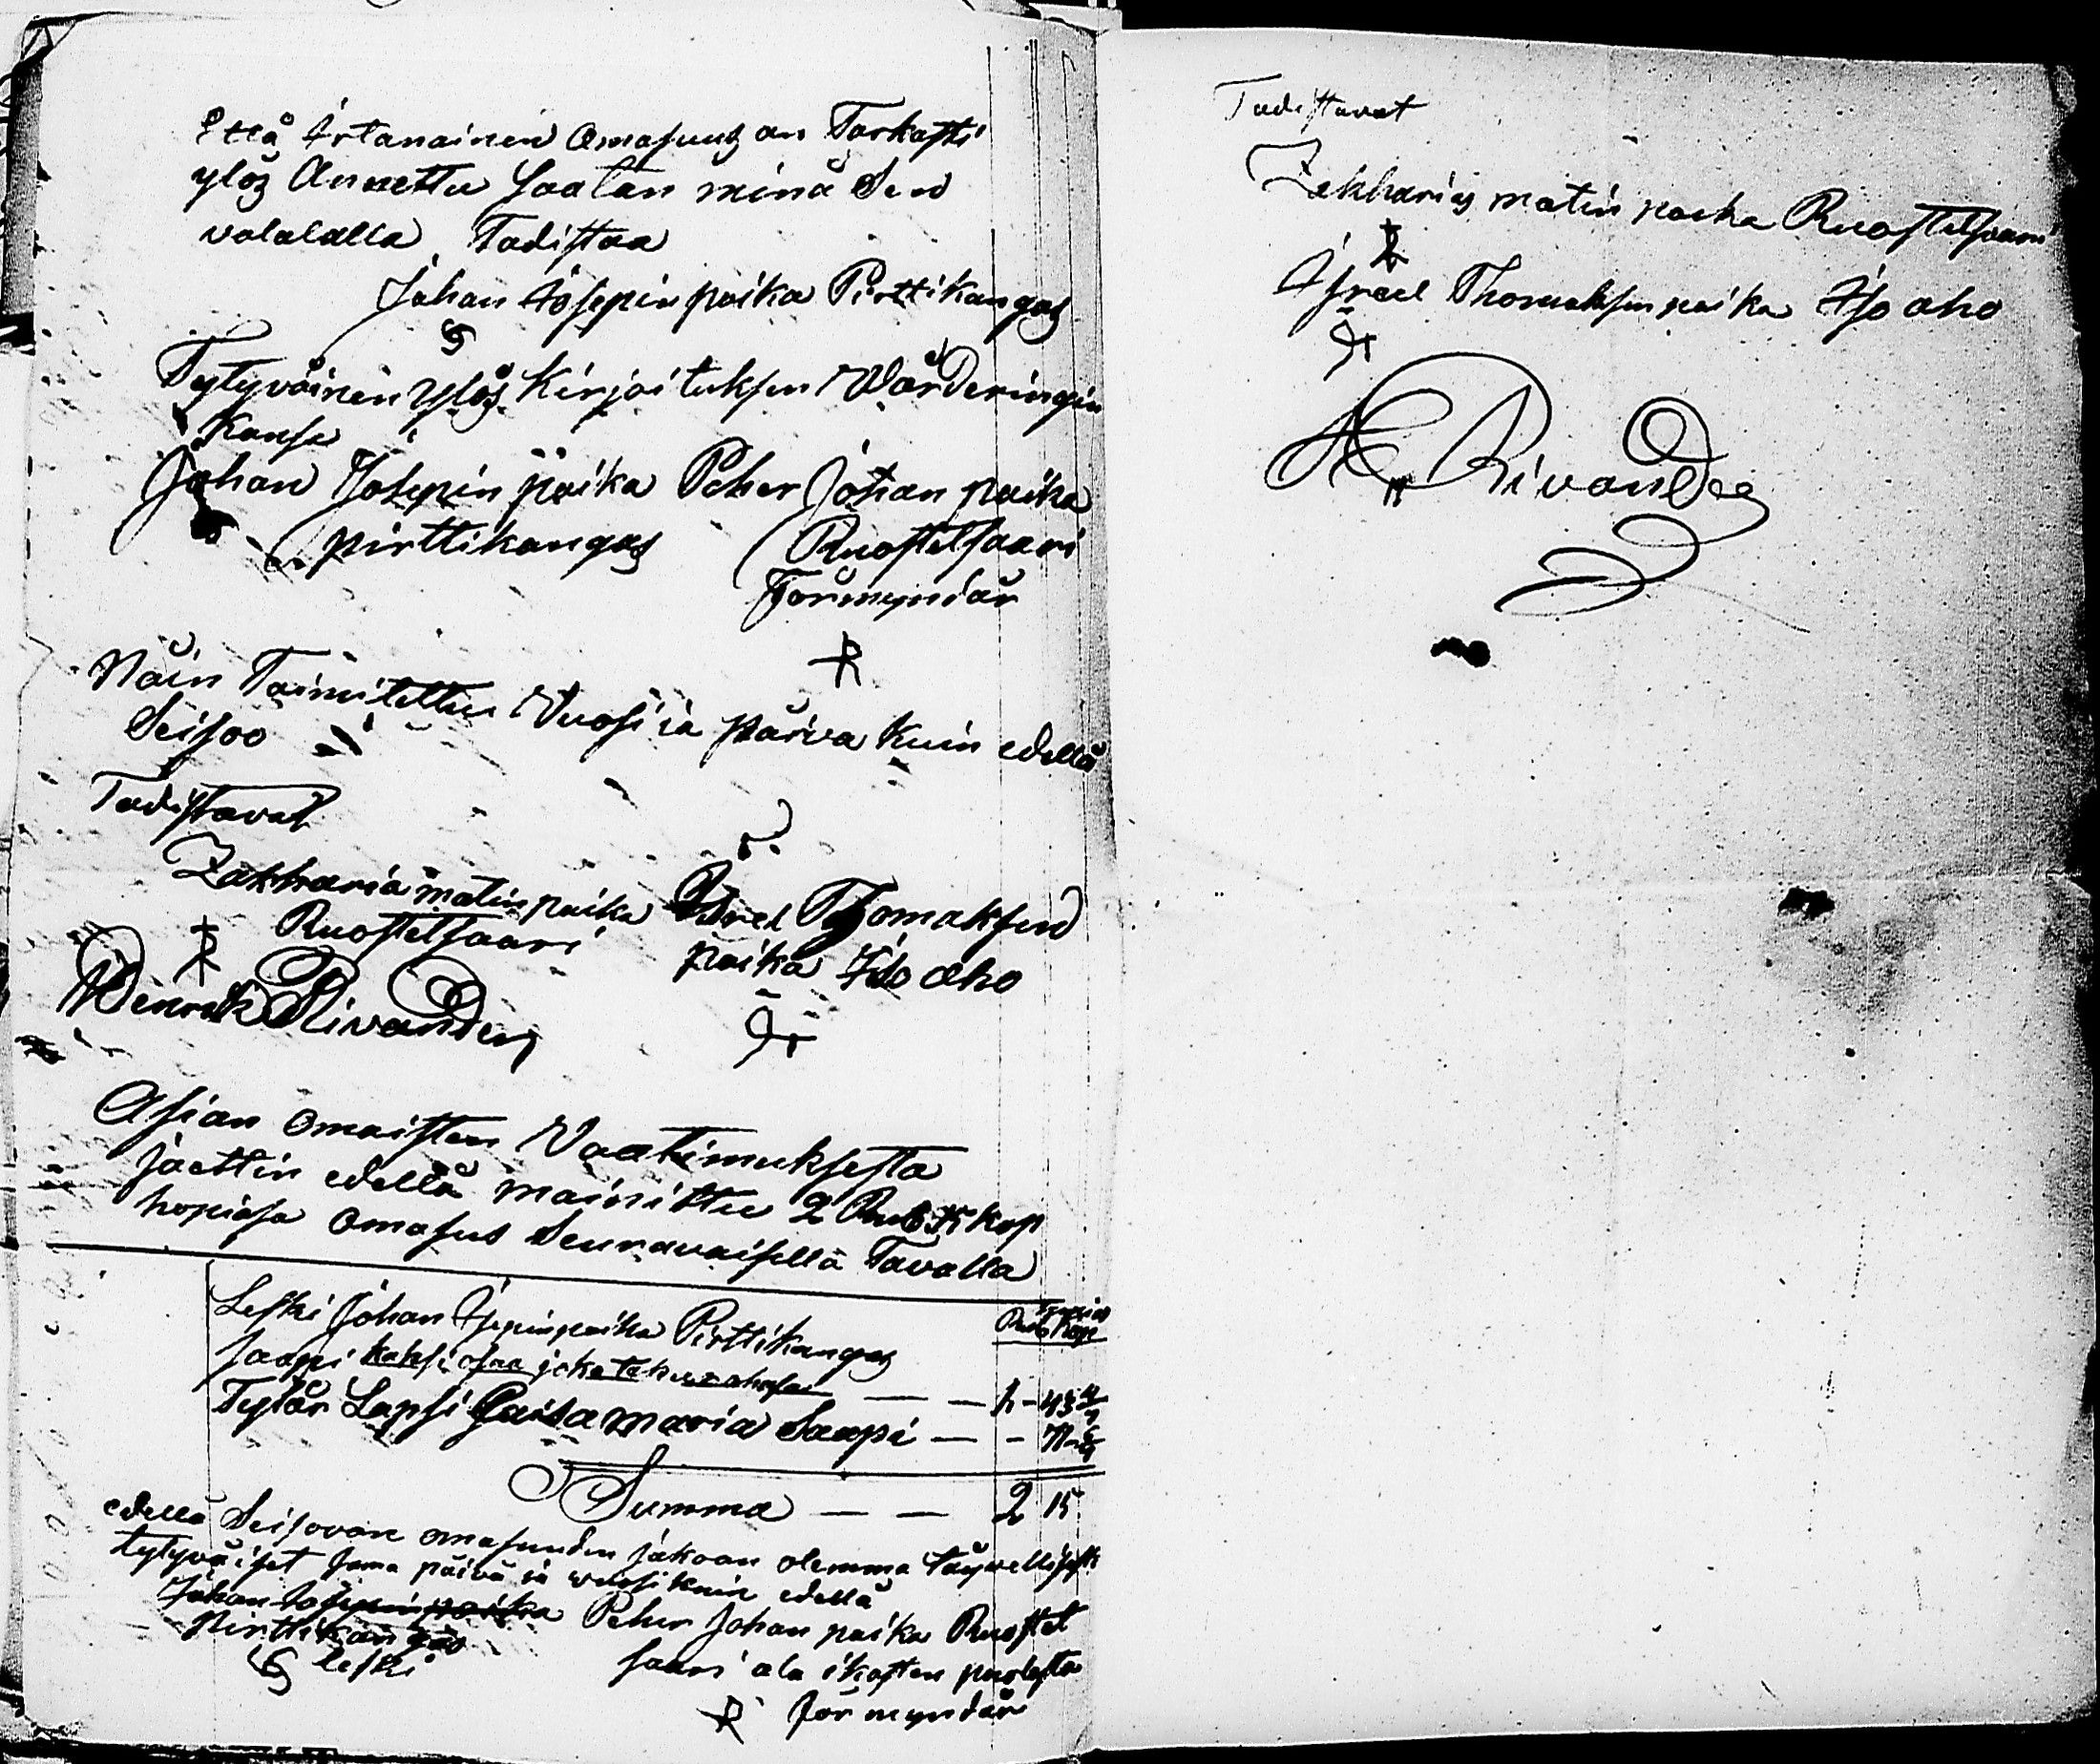 Että Irtanainen Omasuus on Tarkasti
ylös Annettu Saatan minä Sen
valalalla Todistaa
Johan Josepin poika Pirttikangas
Tytyväinen Ylös Kirjoituksen Wärderingin
Kansa
Johan Josepin poika Peher Johan poika
pirttikangas Ruostetsaari
Förmyndär
Näin Toimitettu Vuosi ja päivä Kuin edellä
Seisoo
Todistavat
Zakharia matin poika Isrel Thomaksen
Ruostetsaari poika Iso aho
Henrik Rivander
Asian omaisten Vaatimuksesta
jaettin edellä mainittu 2 Rub 15 kop
hopiasa Omasus Seuravaisella Tavalla
Hopias
Leski Johan Josepinpoika Pirttikangas Rub Kop
saapi kaksi osaa joka teke rahasa — — 1 - 43
Tytär Lapsi Caisa maria Saapi — - 71
Summa — — 2 15
edellä Seisovan omasuuden jakoon olemma täyvellisesti
tytyväiset sama päivä ja vuosi kuin edellä
Johan Josepin poika Peher Johan poika Ruostet
Pirttikangas saari ala ikästen puolesta
leski förmyndär
Todistavat
Zakharias matin poika Ruostetsaari
Israel Thomaksen poika Iso aho
H Rivander